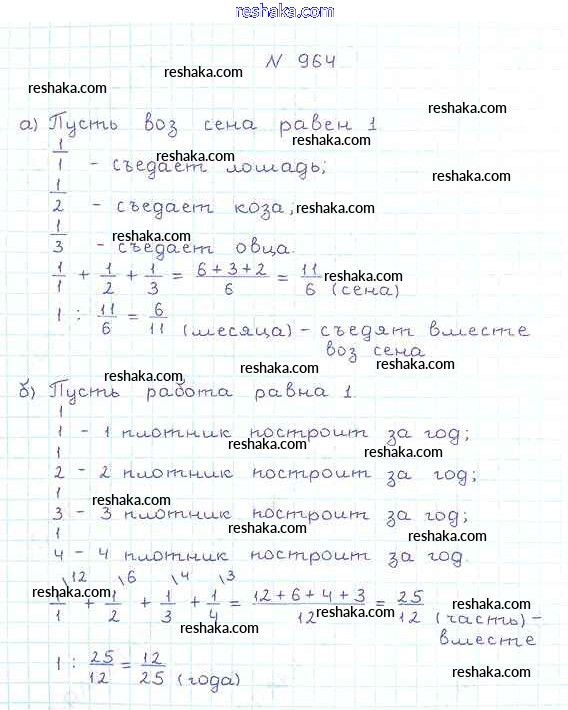 reshaka.com
N 964
reshaka.com
reshaka.com
reshaka.com
а) Пусть воз сена равен 1.
reshaka.com
1/1 - съедает лошадь;
reshaka.com
reshaka.com
1/2 - съедает коза;
reshaka.com
reshaka.com
1/3 - съедает овца.
1/1 + 1/2 + 1/3 = (6+3+2)/6 = 11/6 (сена)
reshaka.com
1 : 11/6 = 6/11 (месяца) - съедят вместе
reshaka.com
воз сена
reshaka.com
reshaka.com
reshaka.com
б) Пусть работа равна 1.
1/1 - 1 плотник построит за год;
reshaka.com
reshaka.com
1/2 - 2 плотник построит за год;
reshaka.com
1/3 - 3 плотник построит за год;
reshaka.com
1/4 - 4 плотник построит за год.
\12 \6 \4 \3
1/1 + 1/2 + 1/3 + 1/4 = (12+6+4+3)/12 = 25/12 (часть) -
reshaka.com
reshaka.com
reshaka.com
reshaka.com
вместе
1 : 25/12 = 12/25 (года)
reshaka.com